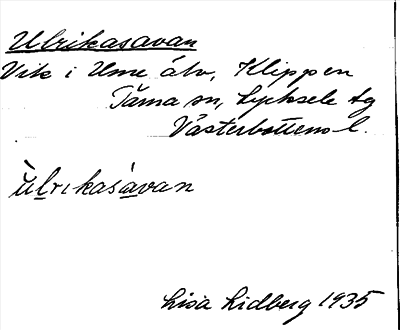 Ulrikasavan
Vik i Ume älv, Klippen
Tärna sn, Lycksele lg
Västerbottens l.
ùlrikasàvan
Lisa Lidberg 1935